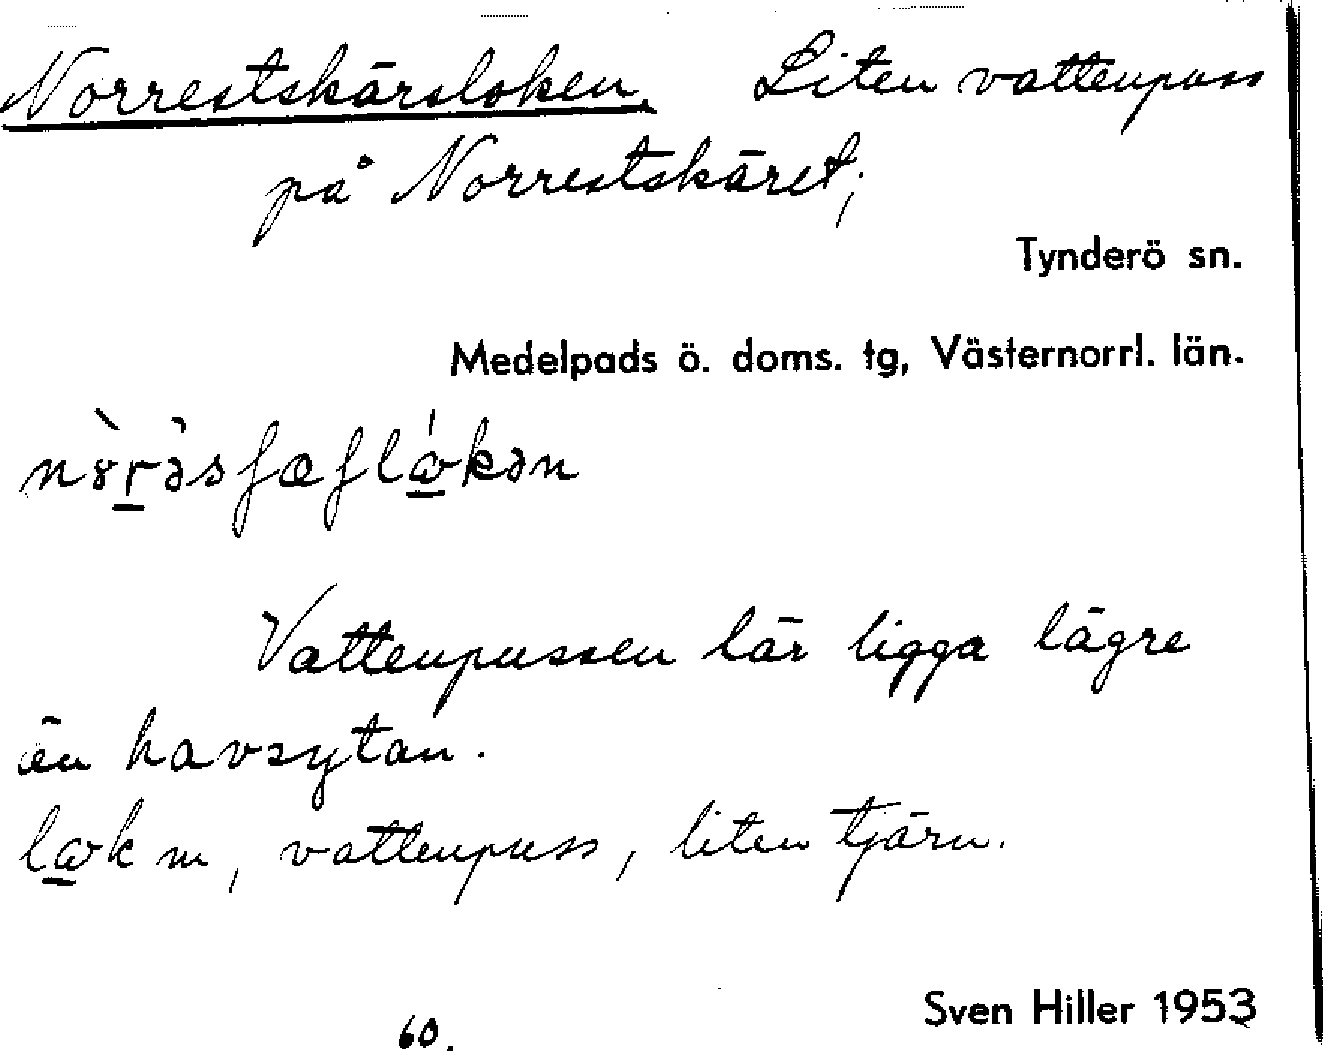 Norrestskärsloken. Liten vattenpuss
på Norrestskäret;
Tynderö sn.
Medelpads ö. doms. tg, Västernorrl. län.
Vattenpussen lär ligga lägre
än havsytan.
m, vattenpuss, liten tjärn.
Sven Hiller 1953
60.